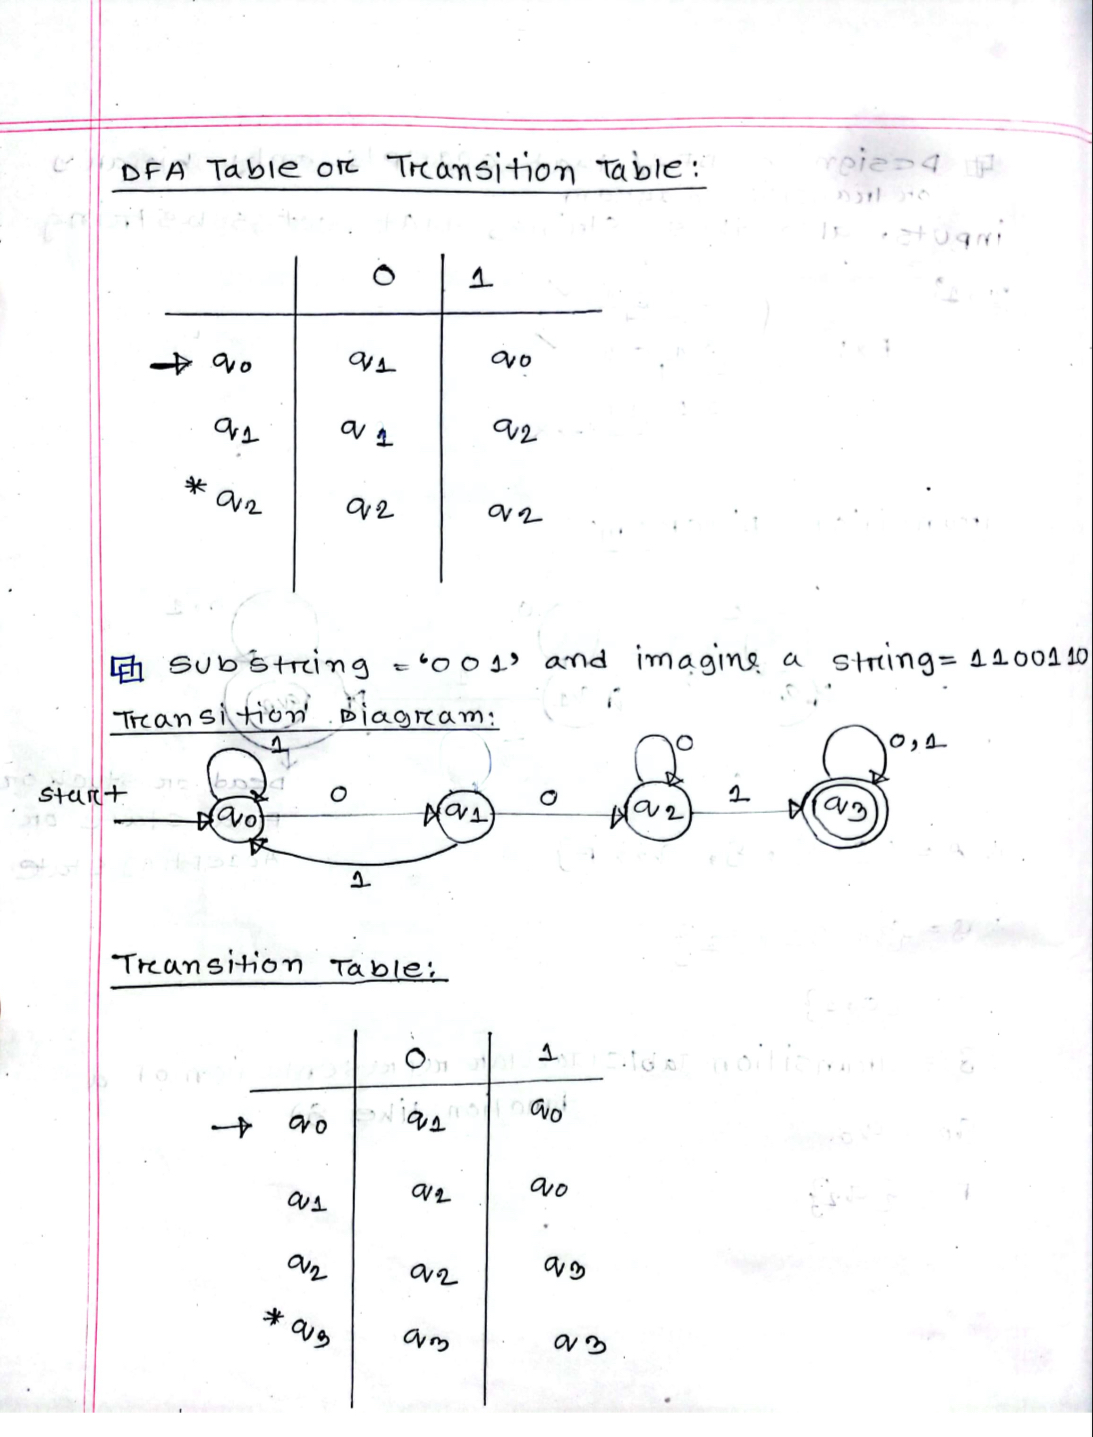 DFA Table or Transition Table:
0 1
→ q0 q1 q0
q1 q1 q2
* q2 q2 q2
substring = '001' and imagine a string= 1100110
Transition Diagram:
1 0 0,1
start q0 0 q1 0 q2 1 q3
1
Transition Table:
0 1
→ q0 q1 q0
q1 q2 q0
q2 q2 q3
* q3 q3 q3